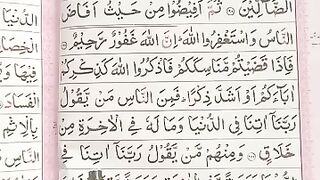 الضَّآلِّيْنَ ۝ ثُمَّ اَفِيْضُوْا مِنْ حَيْثُ اَفَاضَ
النَّاسُ وَاسْتَغْفِرُوا اللّٰهَ ؕ اِنَّ اللّٰهَ غَفُوْرٌ رَّحِيْمٌ ۝
فَاِذَا قَضَيْتُمْ مَّنَاسِكَكُمْ فَاذْكُرُوا اللّٰهَ كَذِكْرِكُمْ
اٰبَآءَكُمْ اَوْ اَشَدَّ ذِكْرًا ؕ فَمِنَ النَّاسِ مَنْ يَّقُوْلُ
رَبَّنَآ اٰتِنَا فِى الدُّنْيَا وَمَا لَهٗ فِى الْاٰخِرَةِ مِنْ
خَلَاقٍ ۝ وَمِنْهُمْ مَّنْ يَّقُوْلُ رَبَّنَآ اٰتِنَا فِى
الدُّنْيَا
الْخِصَامِ
فِيْهَا وَ
الْفَسَادَ ۝
بِالْاِثْمِ